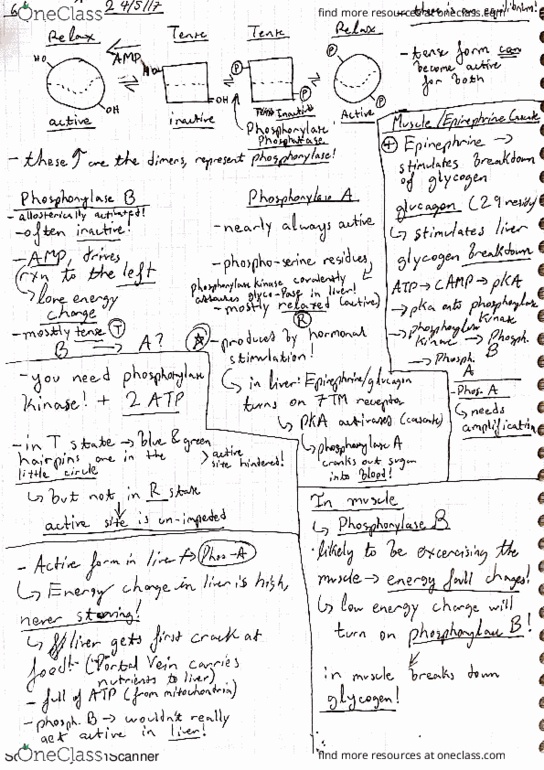 OneClass
2 4/5/17
find more resources at oneclass.com
there is an equilibrium!
Relax
Tense
Tense
Relax
AMP
HO
OH
HO
OH
P
P
P
P
active
inactive
Inactive
Active
Phosphorylase
Phosphatase
- tense form can
become active
for both
- these ↑ are the dimers, represent phosphorylase!
Phosphorylase B
- allosterically activated!
- often inactive!
- AMP, drives
rxn to the left
↳ low energy
charge
- mostly tense (T)
B → A?
- you need phosphorylase
kinase! + 2 ATP
- in T state → blue & green
hairpins are in the
little circle
> active
site hindered!
↳ but not in R state
↓
active site is un-impeded
Phosphorylase A
- nearly always active
- phospho-serine residues
phosphorylase kinase covalently
attaches in liver!
- mostly relaxed (active)
(R)
- produced by hormonal
stimulation!
↳ in liver: Epinephrine/glucagon
turns on 7TM receptor
↳ PKA activates (cascade)
↳ phosphorylase A
cranks out sugar
into blood!
Muscle/Epinephrine Cascade
Epinephrine →
stimulates breakdown
of glycogen
glucagon (29 resids)
↳ stimulates liver
glycogen breakdown
ATP → CAMP → pKA
→ pka onto phosphorylase
kinase
→ phosphorylase
kinase → Phosph.
B
→ Phosph.
A
- Phos. A
↳ needs
amplification
- Active form in liver → Phos-A
↳ Energy charge in liver is high,
never starving!
↳ liver gets first crack at
food! (Portal Vein carries
nutrients to liver)
- full of ATP (from mitochondria)
- phosph. B → wouldn't really
act active in liver!
In muscle
↳ Phosphorylase B
· likely to be excercising the
muscle → energy full charges!
↳ low energy charge will
turn on phosphorylase B!
in muscle breaks down
glycogen!
OneClass
Scanner
find more resources at oneclass.com